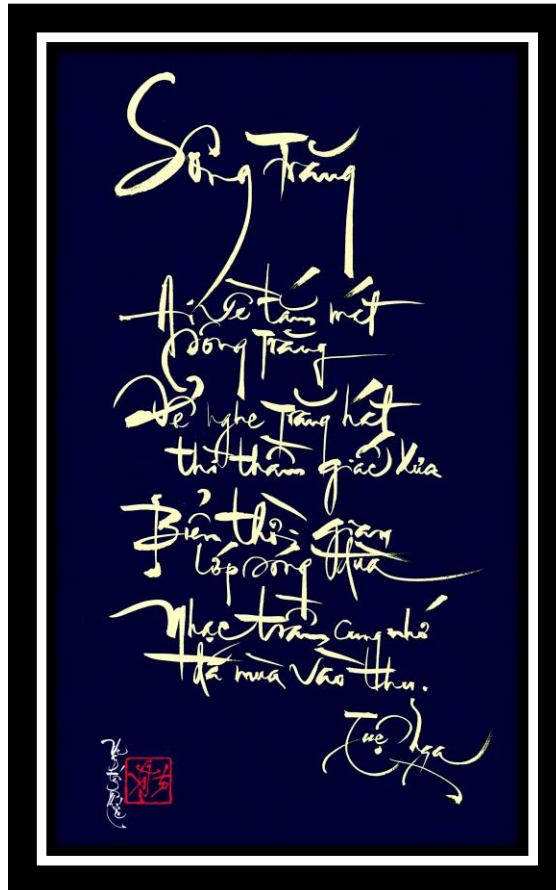 Sông Trăng
Ai về tắm mát
sông Trăng
Để nghe Trăng hát
thì thầm giấc xưa
Biển thời gian
lớp sóng đùa
Nhạc trầm cung nhớ
đã mùa vào thu.
Tuệ Nga